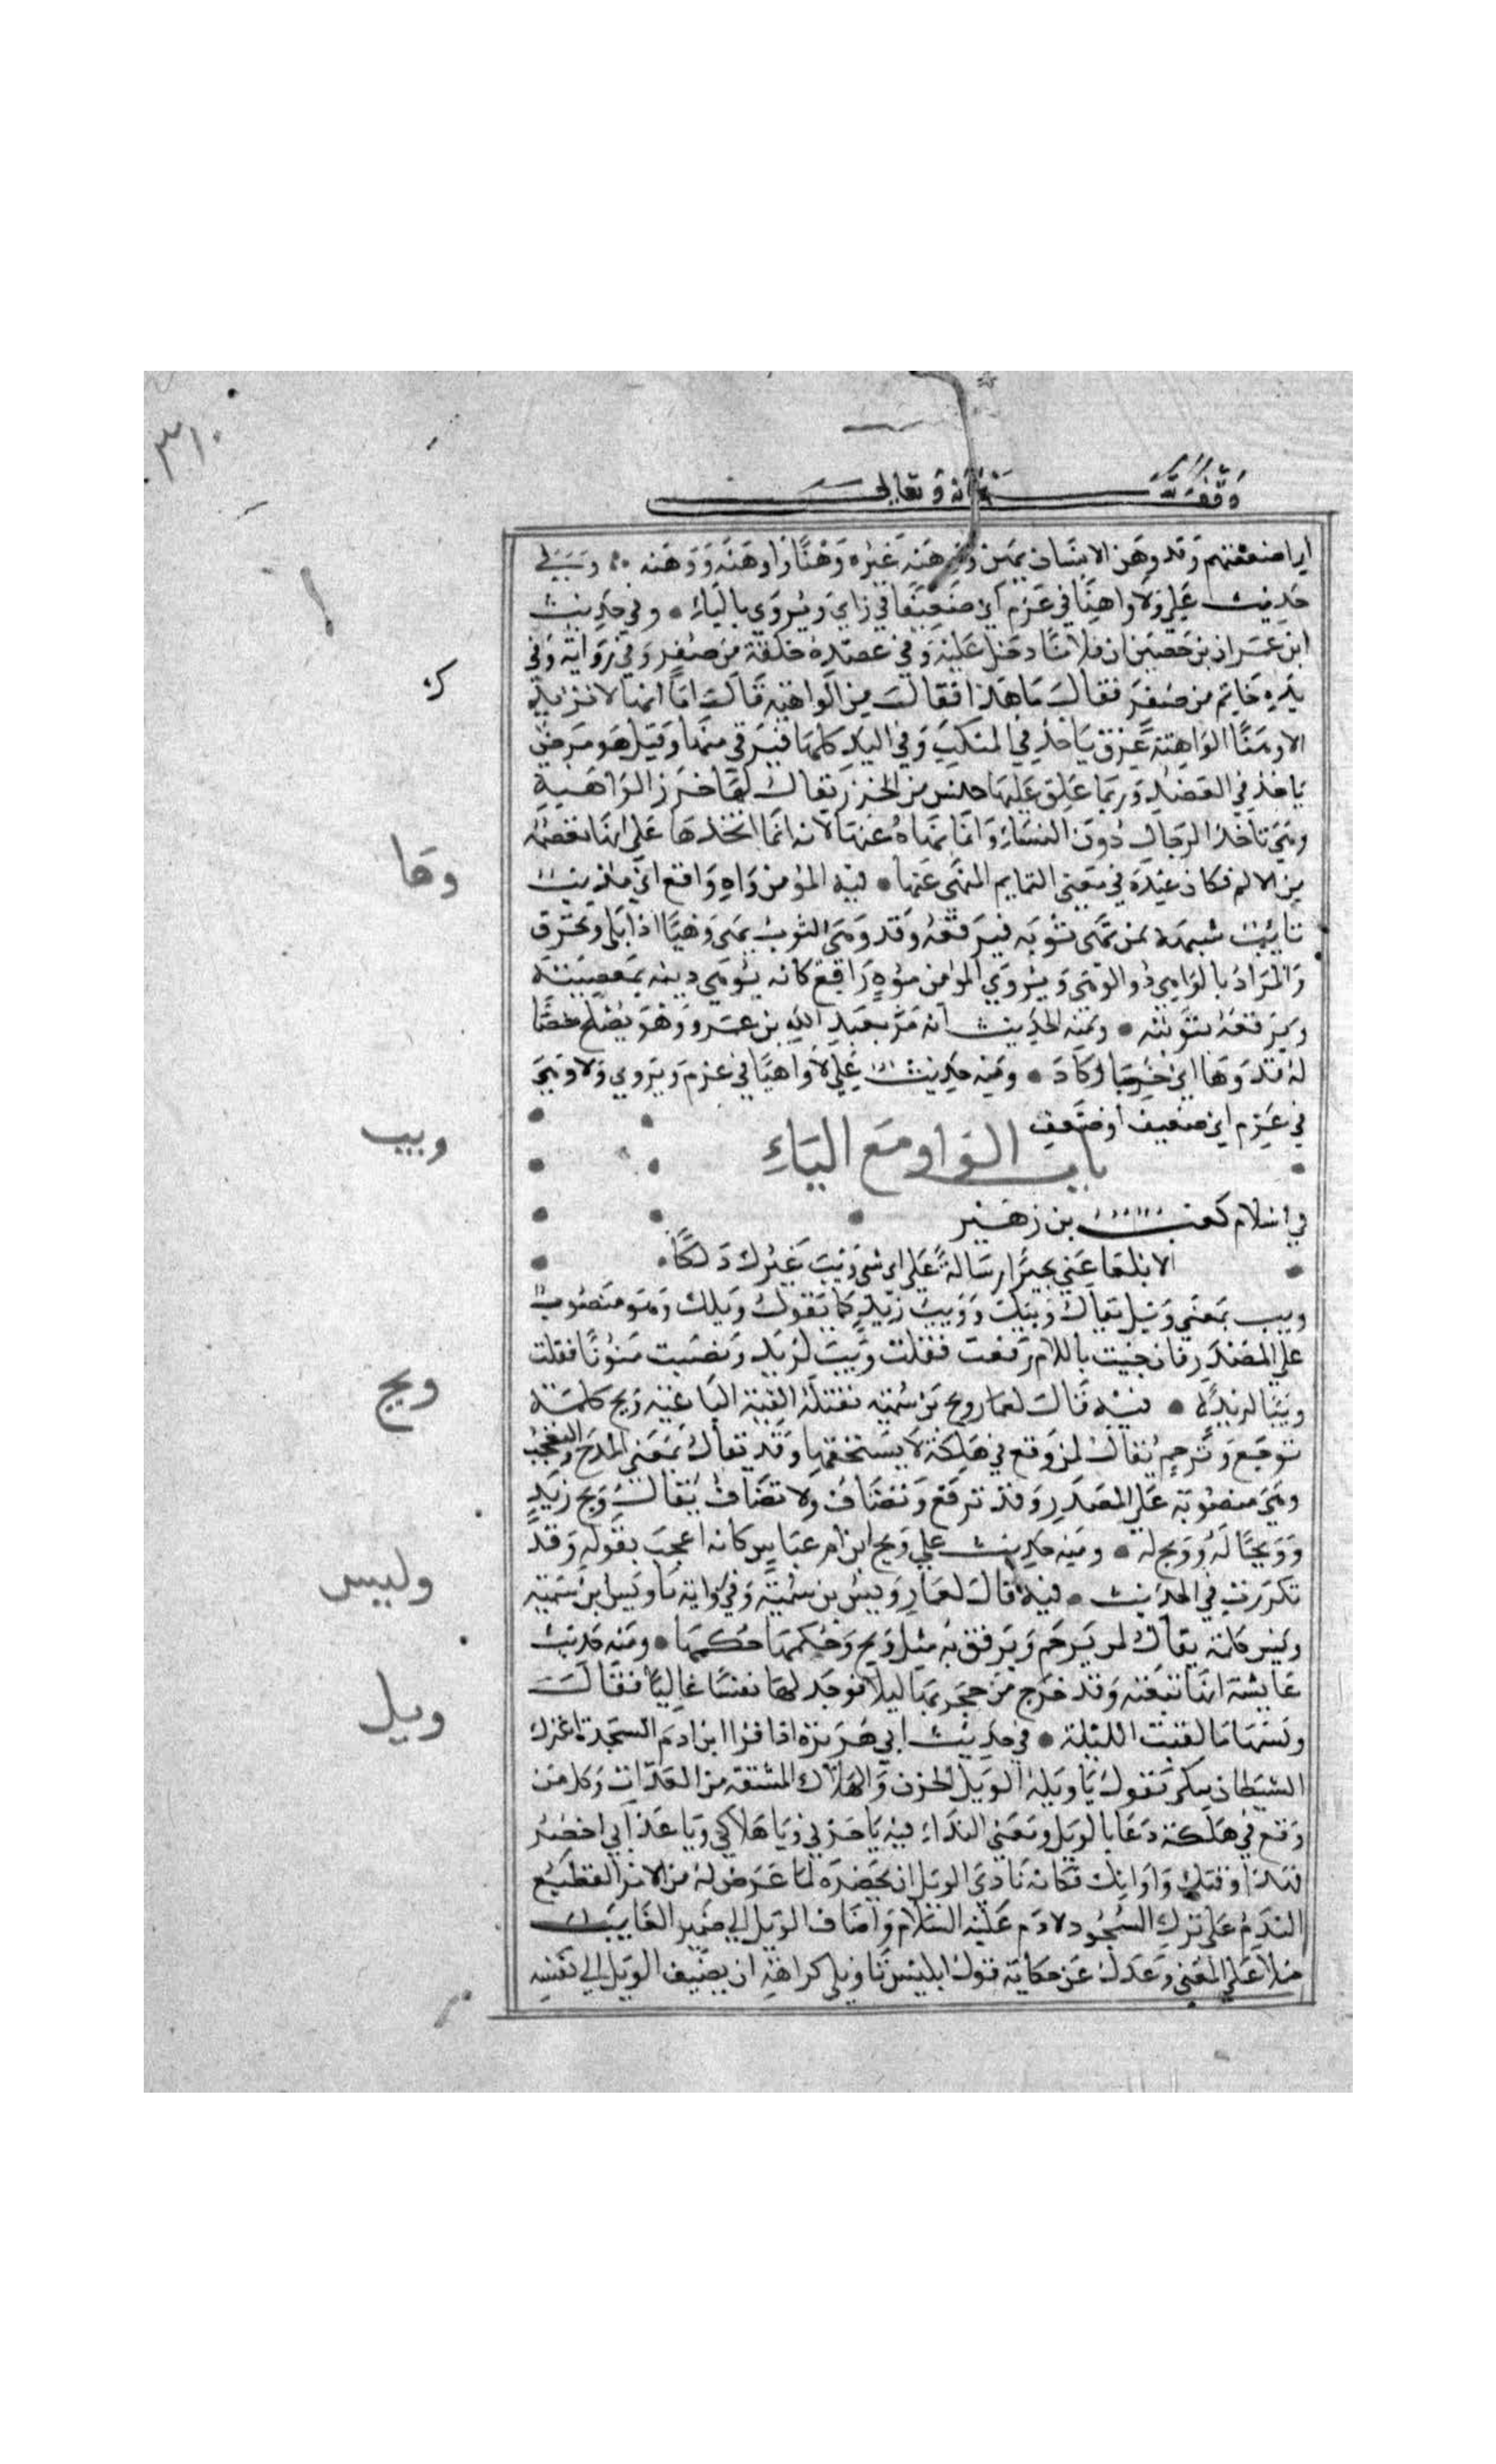 ٣١٠
وقف لله سبحانه وتعالى
اي اضعفتهم وقد وهن الانسان يهن ووهنه غيره وهنا واوهنه ووهنه وبسببه في
حديث علي ولا واهنا في عزم اي ضعيفا في راي ويروي بالياء • وفي حديث
ابن عمران بن حصين ان فلانا دخل عليه وفي عضده حلقة من صفر وفي رواية وفي
يده خاتم من صفر فقال ما هذا فقال من الواهنة قال اما انها لا تزيدك
الا وهنا الواهنة عرق ياخذ في المنكب وفي اليد كلها فيرقي منها وقيل هو مرض
ياخذ في العضد وربما علق عليها جنس من الخرز يقال لها خرز الواهنة
وهي تاخذ الرجال دون النساء وانما نهاه عنها لانه انما اتخذها علي انها تعصمه
من الالم فكان عنده في معني التمايم المنهي عنها • فيه المؤمن واه راقع اي مذنب
تايب شبهه بمن يهي ثوبه فيرقعه وقد وهي الثوب يهي وهيا اذا بلي وتخرق
والمراد بالواهي ذو الوهي ويروي المؤمن موه راقع كانه يوهي دينه بمعصيته
ويرقعه بتوبته • ومنه الحديث انه مر بعبد الله بن عمرو وهو يصلح خصا
له قد وها اي خرب او كاد • ومنه حديث علي ولا واهيا في عزم ويروي ولا وهي
في عزم اي ضعيف او ضعف
باب الواو مع الياء
في اسلام كعب بن زهير
الا ابلغا عني بجيرا رسالة علي اي شي ويب غيرك دلكا
ويب بمعني ويل يقال ويبك وويب زيد كما تقول ويلك وهو منصوب
علي المصدر فان جيت باللام رفعت فقلت ويب لزيد ونصبت منونا فقلت
ويبا لزيد • فيه قال لعمار ويح بن سمية تقتله الفئة الباغية ويح كلمة
توجع وترحم تقال لمن وقع في هلكة لا يستحقها وقد تقال بمعني المدح والتعجب
وهي منصوبة علي المصدر وقد ترفع وتضاف ولا تضاف يقال ويح زيد
وويحا له وويح له • ومنه حديث علي ويح ابن ام عباس كانه اعجب بقوله وقد
تكررت في الحديث • فيه قال لعمار ويس بن سمية وفي رواية يا ويس ابن سمية
ويس كلمة يقال لمن يرحم ويرفق به مثل ويح وحكمها حكمها • ومنه حديث
عايشة انها تبعته وقد خرج من حجرتها ليلا فوجد لها نفسا عاليا فقال
ويسها ما لقيت الليلة • في حديث ابي هريرة اذا قرا ابن ادم السجدة اعتزل
الشيطان يبكي يقول يا ويله الويل الحزن والهلاك المشقة من العذاب وكل من
وقع في هلكة دعا بالويل ومعني النداء فيه يا حزني ويا هلاكي ويا عذابي احضر
فهذا وقتك واوانك فكانه نادي الويل ان يحضره لما عرض له من الامر الفظيع
الندم علي ترك السجود لادم عليه السلام واضاف الويل الي ضمير الغايب
حملا علي المعني وعدل عن حكاية قول ابليس يا ويلي كراهة ان يضيف الويل الي نفسه
وها
ويب
ويح
وليس
ويل